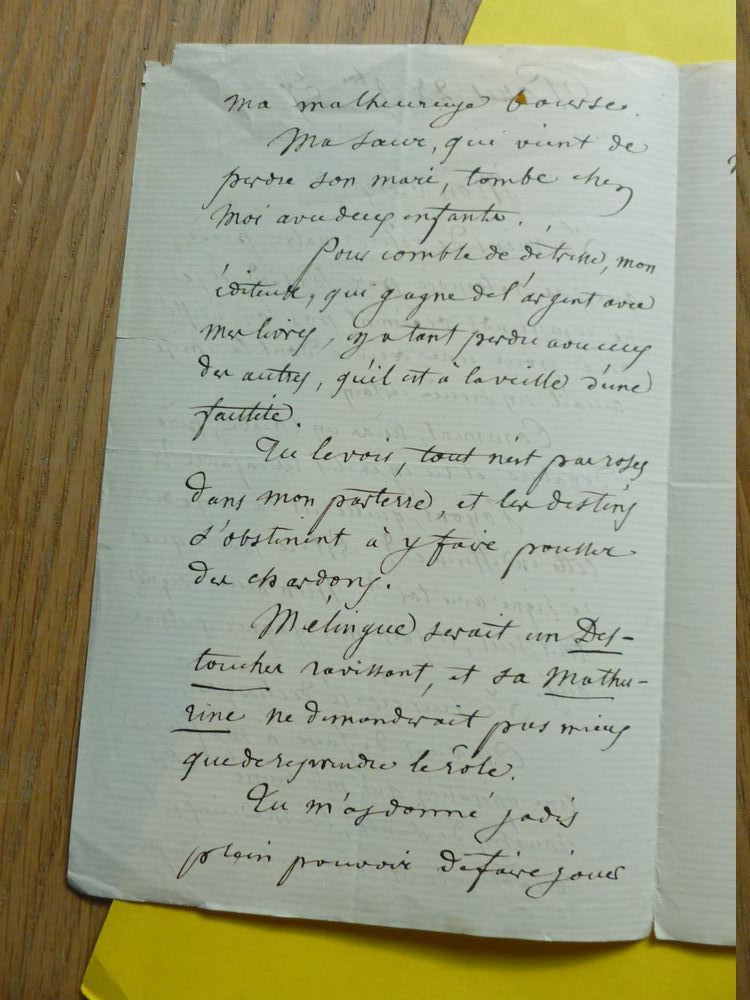 ma malheureuse bourse.
Ma sœur, qui vient de
perdre son mari, tombe chez
moi avec deux enfants.
Pour comble de détresse, mon
éditeur, qui gagne de l'argent avec
mes livres, en a tant perdu avec ceux
des autres, qu'il est à la veille d'une
faillite.
Tu le vois, tout n'est pas roses
dans mon parterre, et les destins
s'obstinent à y faire pousser
des chardons.
Mélingue serait un Des-
touches ravissant, et sa Mathu-
rine ne demanderait pas mieux
que de reprendre le rôle.
Tu m'as donné jadis
plein pouvoir de faire jouer